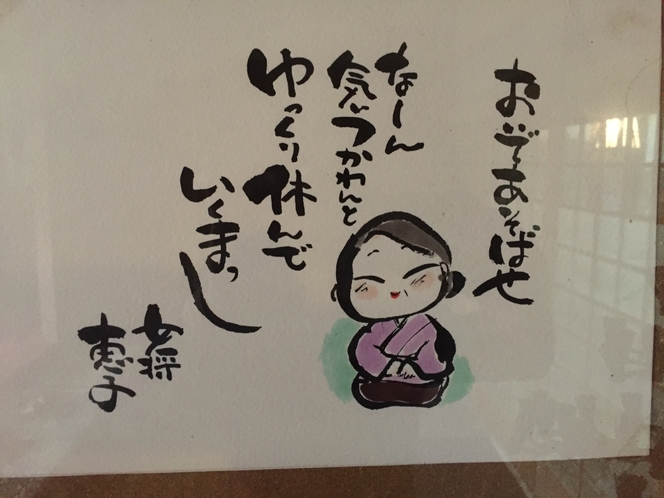 おいであそばせ
なーん
気ぃつかわんと
ゆっくり休んで
いくまっし
女将
恵子